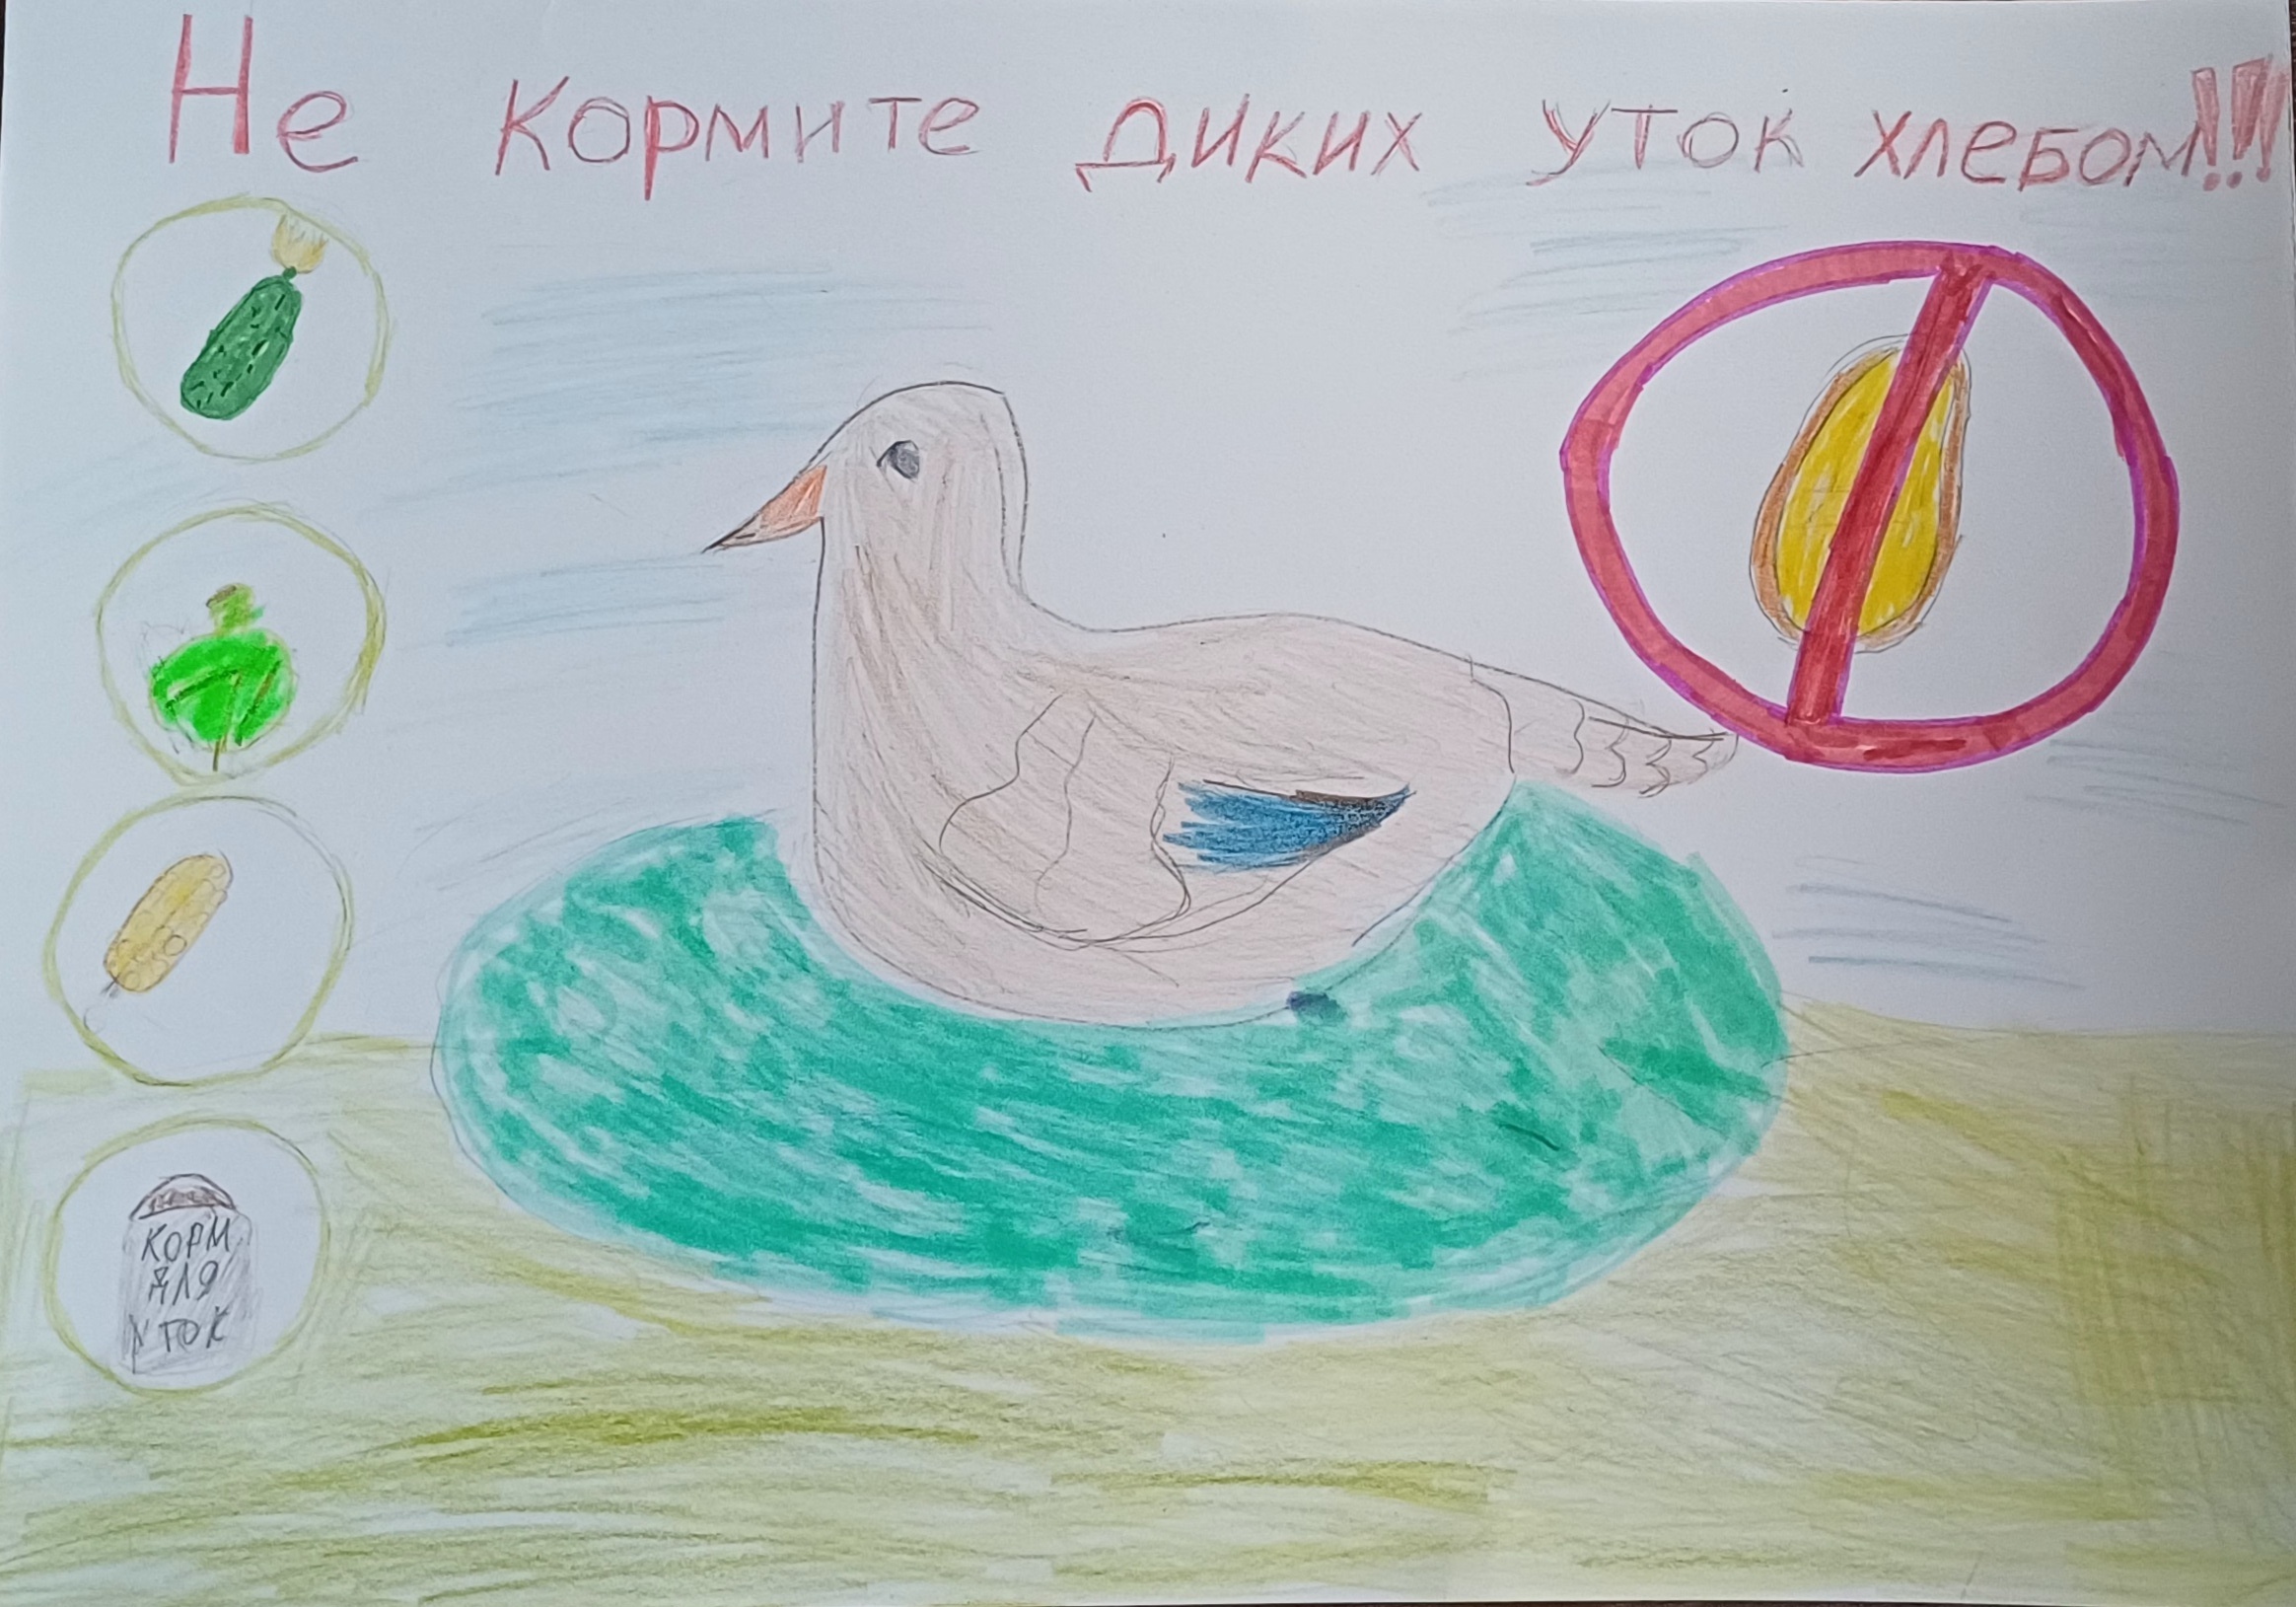 Не кормите диких уток хлебом!!!
КОРМ
ДЛЯ
УТОК